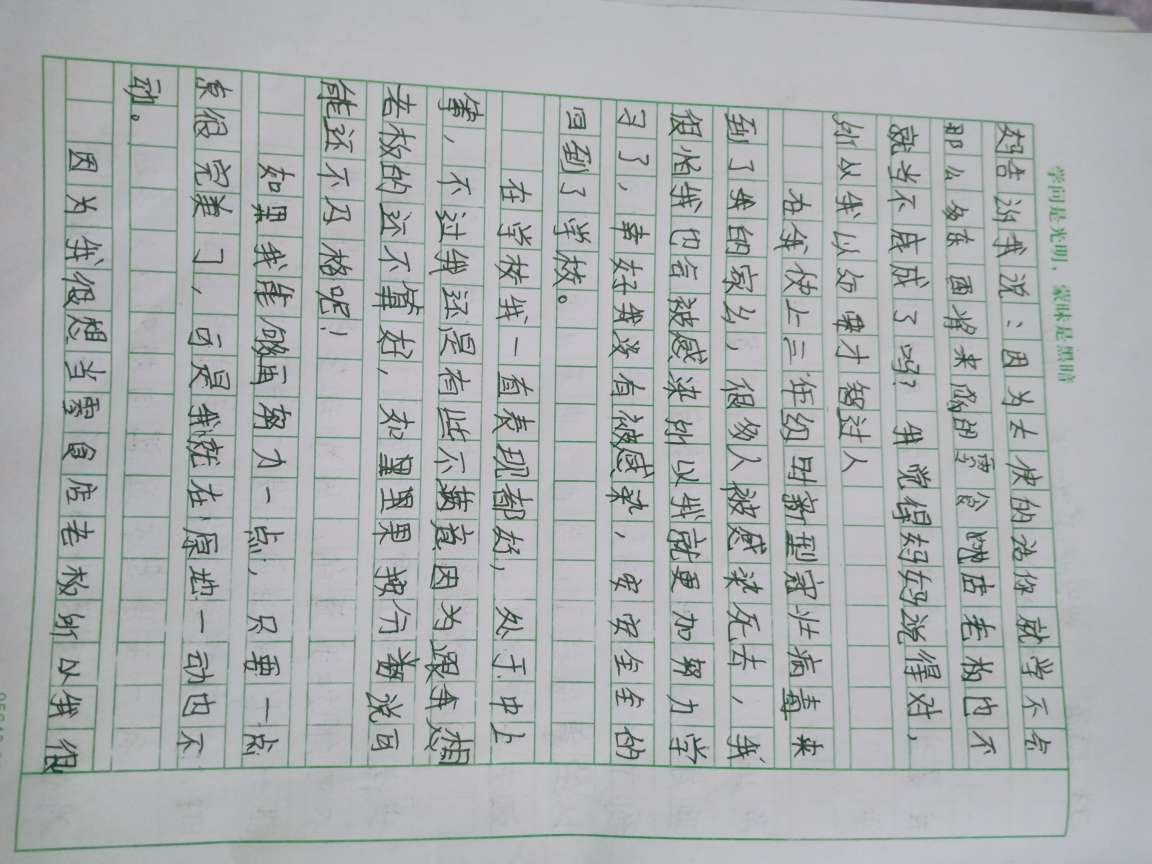 学问是光明，蒙昧是黑暗
妈告诉我说：因为太快的话你就学不会
那么多东西将来你的零食店老板也不
就当不成了吗？我觉得妈妈说得对，
所以我以后要才智过人
在我快上三年级时新型冠状病毒来
到了我的家乡，很多人被感染死去，我
很怕我也会被感染所以我就更加努力学
习了，幸好我没有被感染，安安全全的
回到了学校。
在学校我一直表现都好，处于中上
等，不过我还是有些不满意因为跟我想
老板的还不算好，如果按分数说可
能还不及格呢！
如果我能够再努力一点，只要一点
点很完美了，可是我就在原地一动也不
动。
因为我很想当零食店老板所以我很